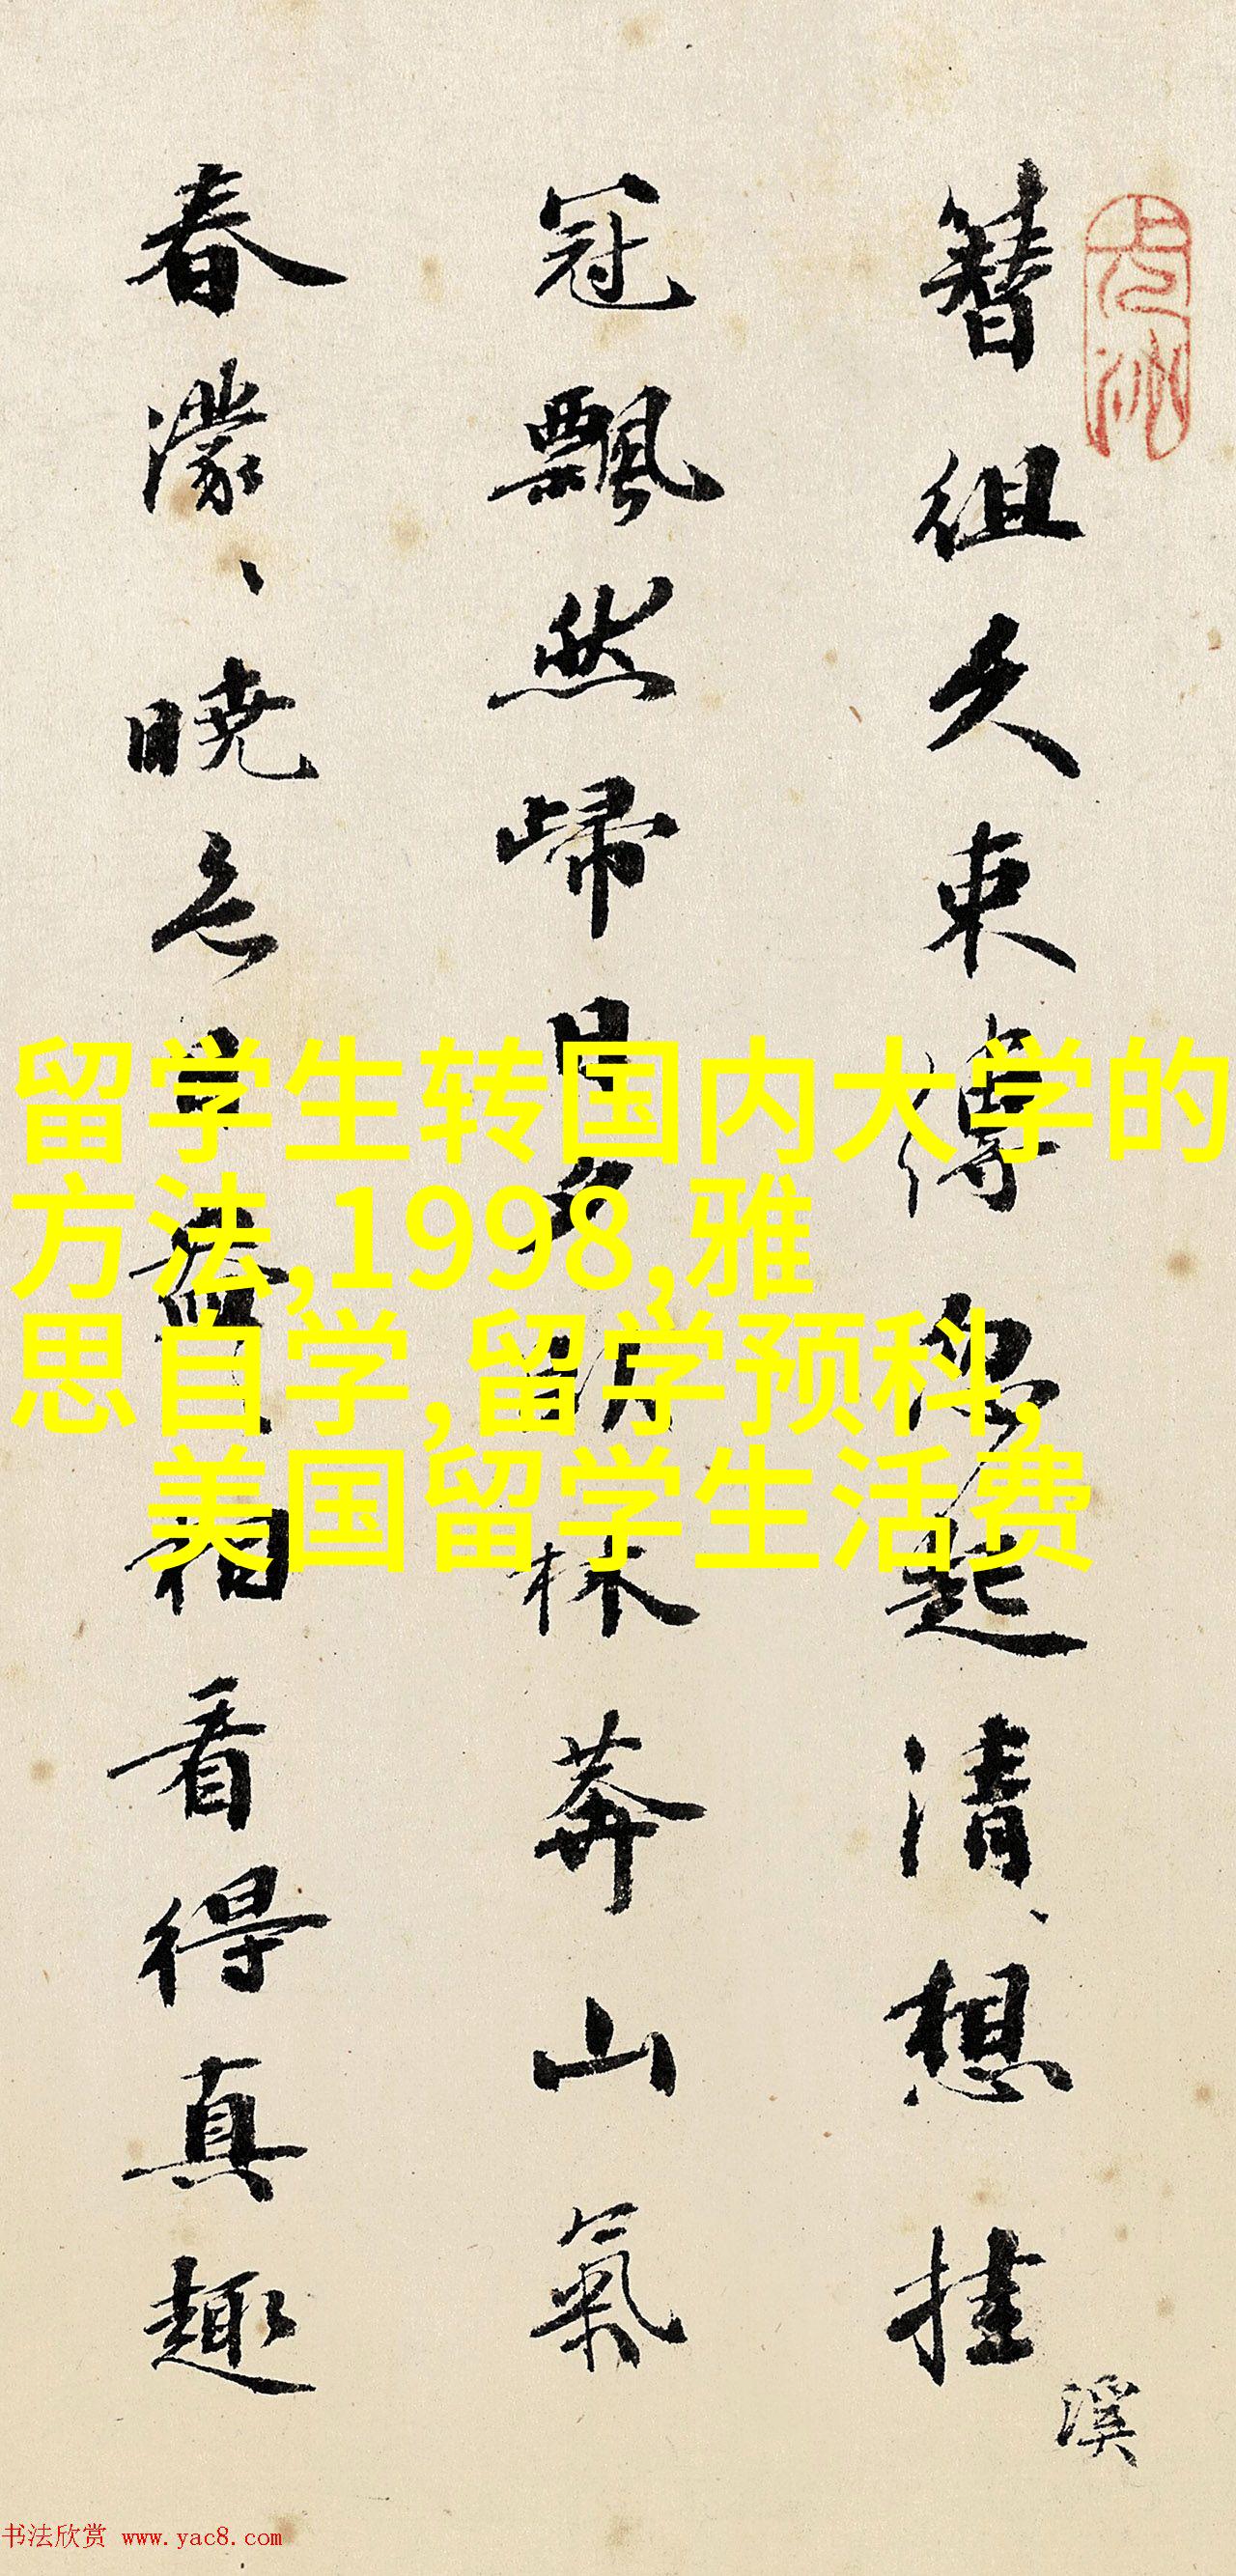 簪组久束缚忽起清、想挂
溪
冠飘然歸日夕 林莽山氣
春濛、曉色 相看得真趣
留学生转国内大学的
方法,1998,雅
思自学,留学预科,
美国留学生活费
书法欣赏 www.yac8.com